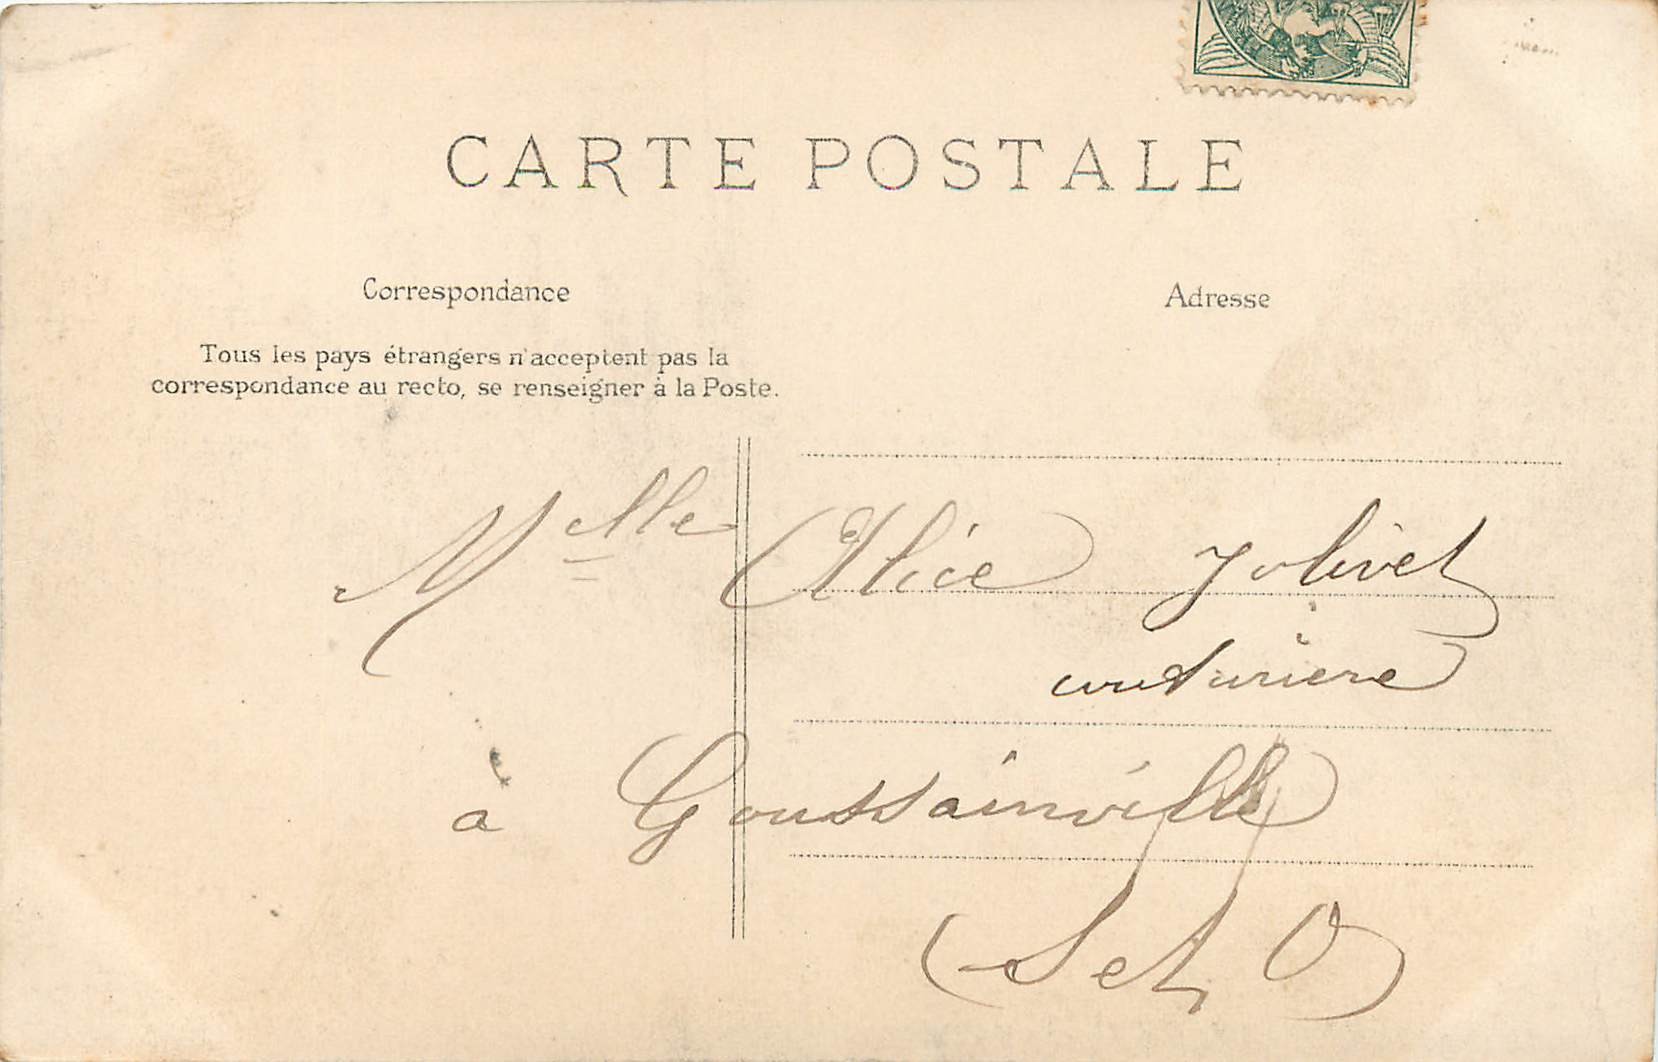 CARTE POSTALE
Correspondance
Adresse
Tous les pays étrangers n'acceptent pas la
correspondance au recto, se renseigner à la Poste.
Melle Alice Jolivet
couturière
à Goussainville
(S et O)